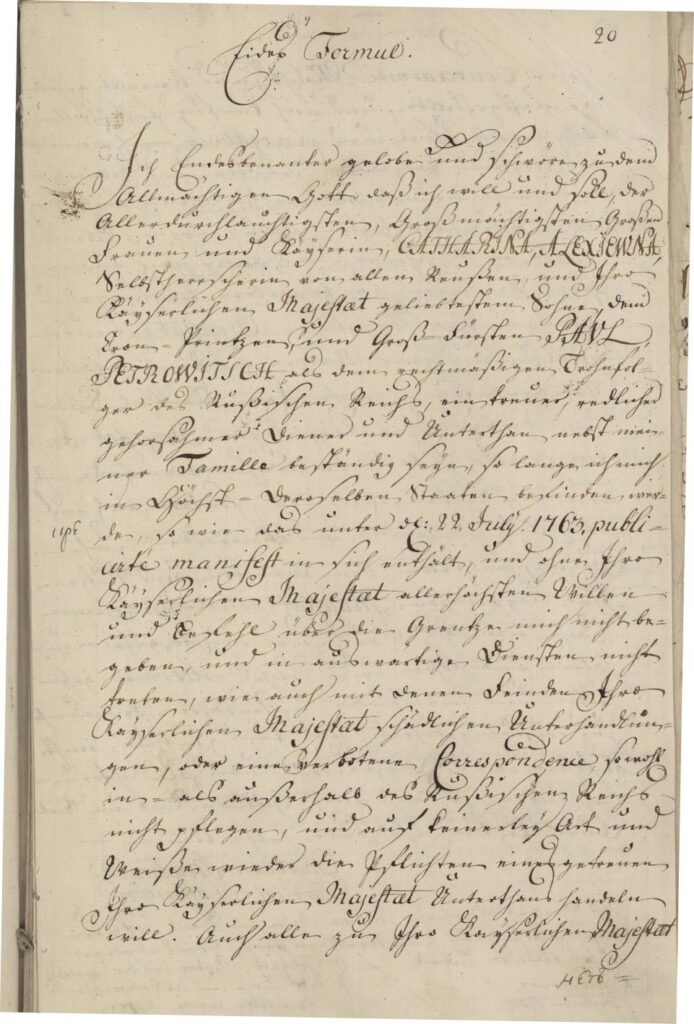 20
Eides Formul.
Ich Endesbenanter gelobe und schwöre zu dem
Allmächtigen Gott, daß ich will und soll, der
Allerdurchlauchtigsten, Großmächtigsten Großen
Frauen und Kayserin, CATHARINA, ALEXIEWNA,
Selbstherrscherin von allen Reußen, und Ihro
Käyserlichen Majestæt geliebtestem Sohne, dem
Cron-Printzen, und Groß-Fürsten PAUL,
PETROWITSCH, als dem rechtmäßigen Trohnfol-
ger des Rußischen Reichs, ein treuer, redlicher
gehorsahmer Diener und Unterthan nebst mei-
ner Famille beständig seyn, so lange, ich mich
in Höchst-Deroselben Staaten befinden wer-
de, so wie das unter d: 22 July. 1763. publi-
cirte manifest in sich enthält, und ohne Ihro
Käyserlichen Majestæt allerhöchsten Willen
und Befehl über die Grentze mich nicht be-
geben, und in auswärtige Diensten nicht
treten, wie auch mit denen Feinden Ihro
Käyserlichen Majestæt schädlichen Unterhandlun-
gen, oder eine verbotene Correspondence, so wohl
in- als außerhalb des Rußischen Reichs
nicht pflegen, und auf keinerley Art und
Weiße wieder die Pflichten eines getreuen
Ihro Käyserlichen Majestæt Unterthans handeln
will. Auch alle zu Ihro Käyserlichen Majestæt